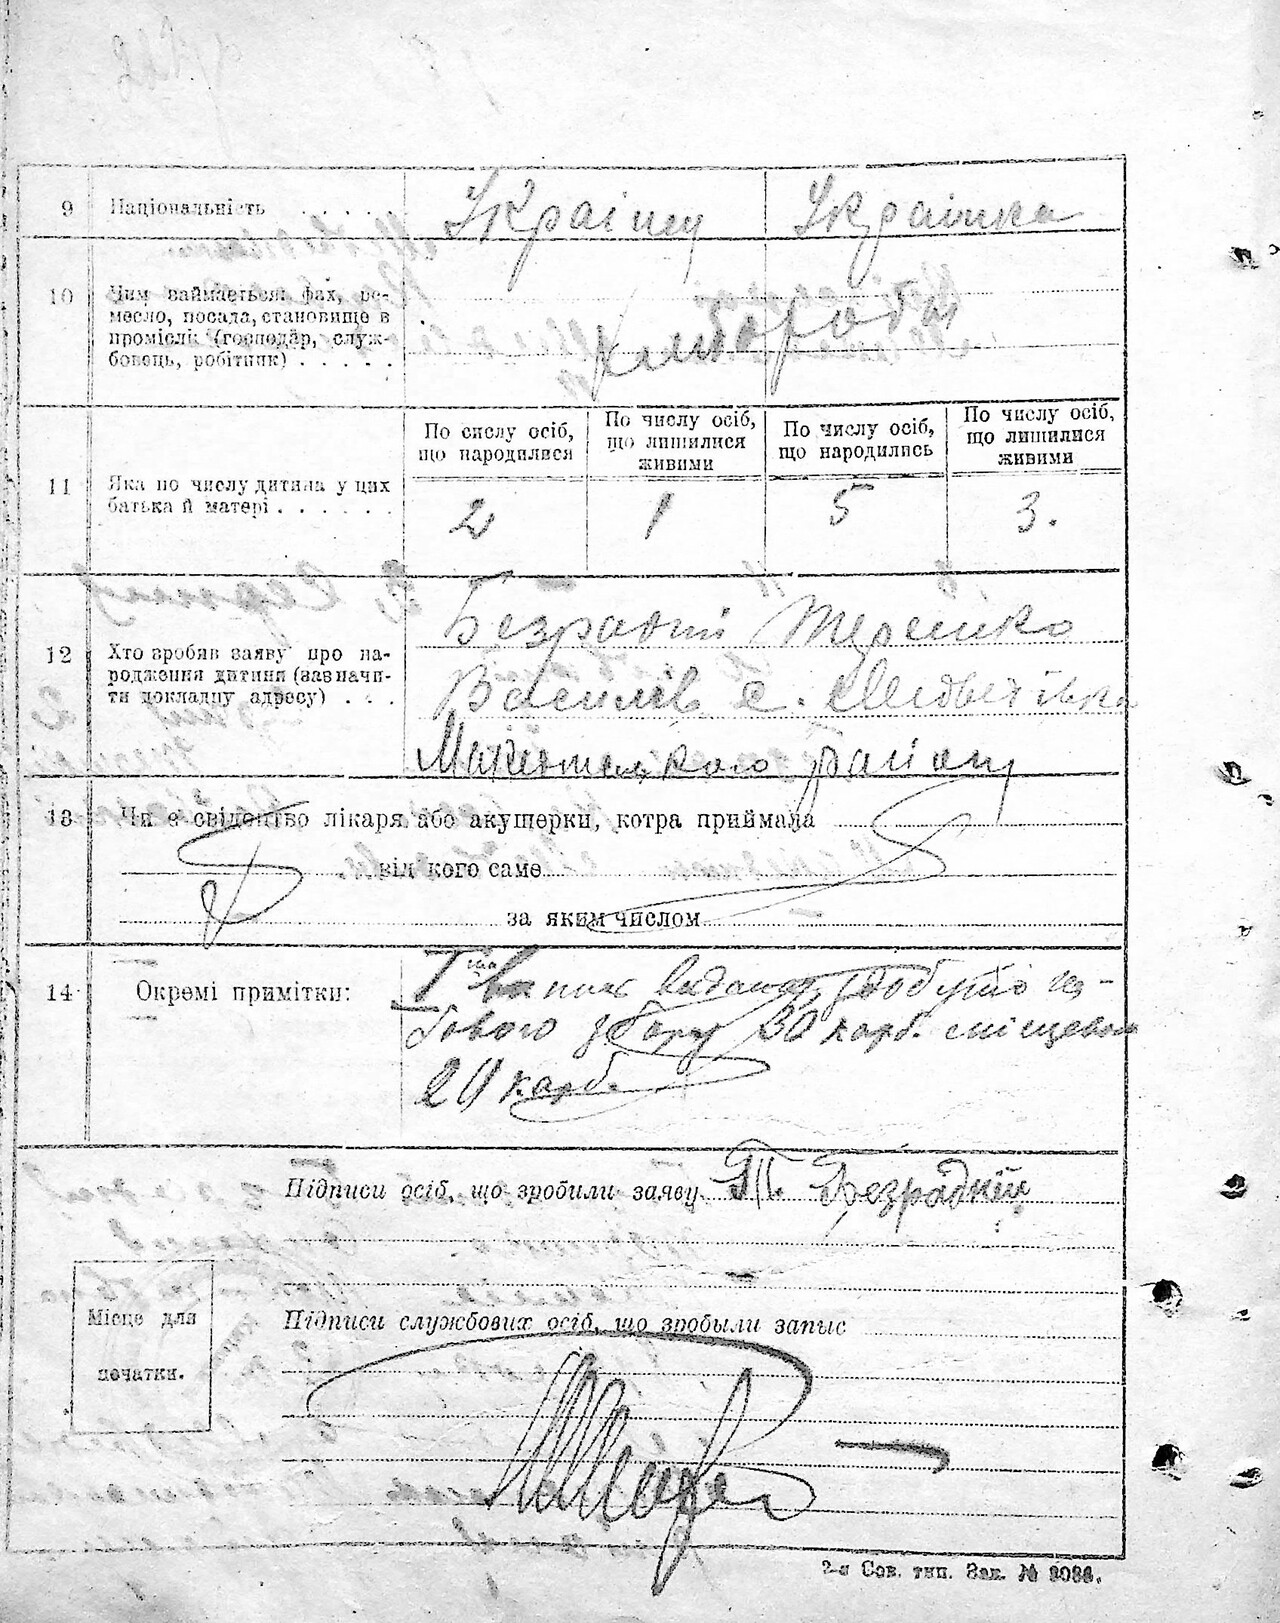 9 Національність . . . . . Українц Українка
10 Чим займається: фах, ре-
месло, посада, становище в
промислі (господар, служ-
бовець, робітник) . . . . .
хлібороби
11 Яка по числу дитина у цих
батька й матері . . . . . .
По сислу осіб,
що народилися
По числу осіб,
що лишилися
живими
По числу осіб,
що народились
По числу осіб,
що лишилися
живими
2 1 5 3.
12 Хто зробив заяву про на-
родження дитини (зазначи-
ти докладну адресу) . . .
Безрадній
Василів с. Медветівка
району
13 Чи є свідоцтво лікаря, або акушерки, котра приймала
від кого саме
за яким числом
14 Окремі примітки:
збору 30 карб. місцевого
20 карб.
Підписи осіб, що зробили заяву. Безрадній
Місце для
печатки.
Підписи службових осіб, що зробыли запыс
2-я Сов. тип. Зак. №